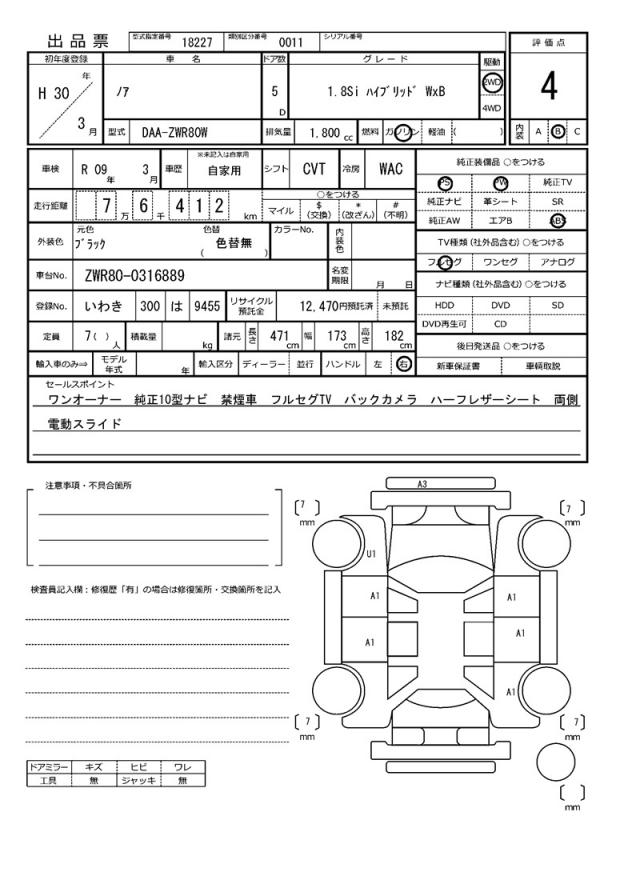 出品票 型式指定番号 18227 類別区分番号 0011 シリアル番号
評価点
4
内装 A B C
初年度登録 車名 ドア数 グレード 駆動
H 30 年 3 月
ノア 5 D 1.8Si ハイブリッド WxB 2WD 4WD
型式 DAA-ZWR80W 排気量 1.800 cc 燃料 ガソリン 軽油 ( )
車検 R 09 年 3 月 車歴 ※未記入は自家用 自家用 シフト CVT 冷房 WAC
走行距離 7 万 6 千 4 1 2 km
○をつける
マイル $ (交換) * (改ざん) # (不明)
外装色 元色 ブラック 色替 色替無 ( ) カラーNo. 内装色
車台No. ZWR80-0316889 名変期限 月 日
登録No. いわき 300 は 9455 リサイクル預託金 12,470円預託済 未預託
定員 7( ) 人 積載量 kg 諸元 長さ 471 cm 幅 173 cm 高さ 182 cm
輸入車のみ⇒ モデル年式 年 輸入区分 ディーラー 並行 ハンドル 左 右
純正装備品 ○をつける
PS PW 純正TV
純正ナビ 革シート SR
純正AW エアB ABS
TV種類 (社外品含む) ○をつける
フルセグ ワンセグ アナログ
ナビ種類 (社外品含む) ○をつける
HDD DVD SD
DVD再生可 CD
後日発送品 ○をつける
新車保証書 車輌取説
セールスポイント
ワンオーナー 純正10型ナビ 禁煙車 フルセグTV バックカメラ ハーフレザーシート 両側
電動スライド
注意事項・不具合箇所
検査員記入欄：修復歴「有」の場合は修復箇所・交換箇所を記入
A3
7 mm
7 mm
U1
A1 A1
A1 A1
A1
7 mm
7 mm
mm
ドアミラー キズ ヒビ ワレ
工具 無 ジャッキ 無